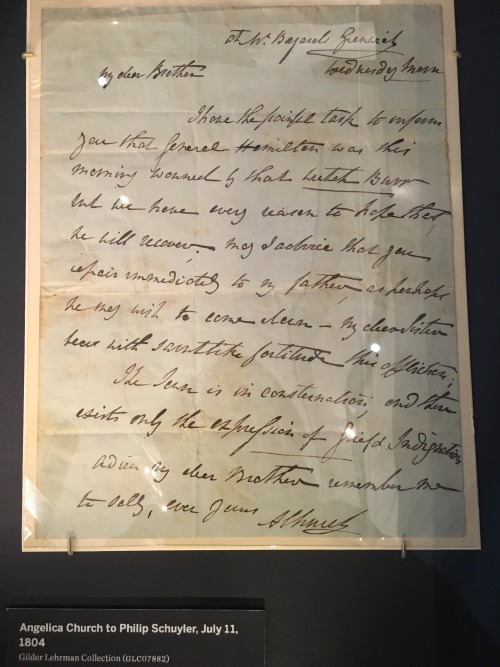 at Mr. Bayards Greenwich
Wednesday Morn
My dear Brother
I have the painful task to inform
you that General Hamilton was this
morning wounded by that wretch Burr
but we have every reason to hope that
he will recover. May I advice that you
repair immediately to my father, as perhaps
he may wish to come down – My dear Sister
bears with saintlike fortitude this affliction;
The Town is in consternation, and there
exists only the expression of Grief & Indignation
adieu my dear Brother remember me
to Sally, ever Yours
A Church
Angelica Church to Philip Schuyler, July 11,
1804
Gilder Lehrman Collection (GLC07882)